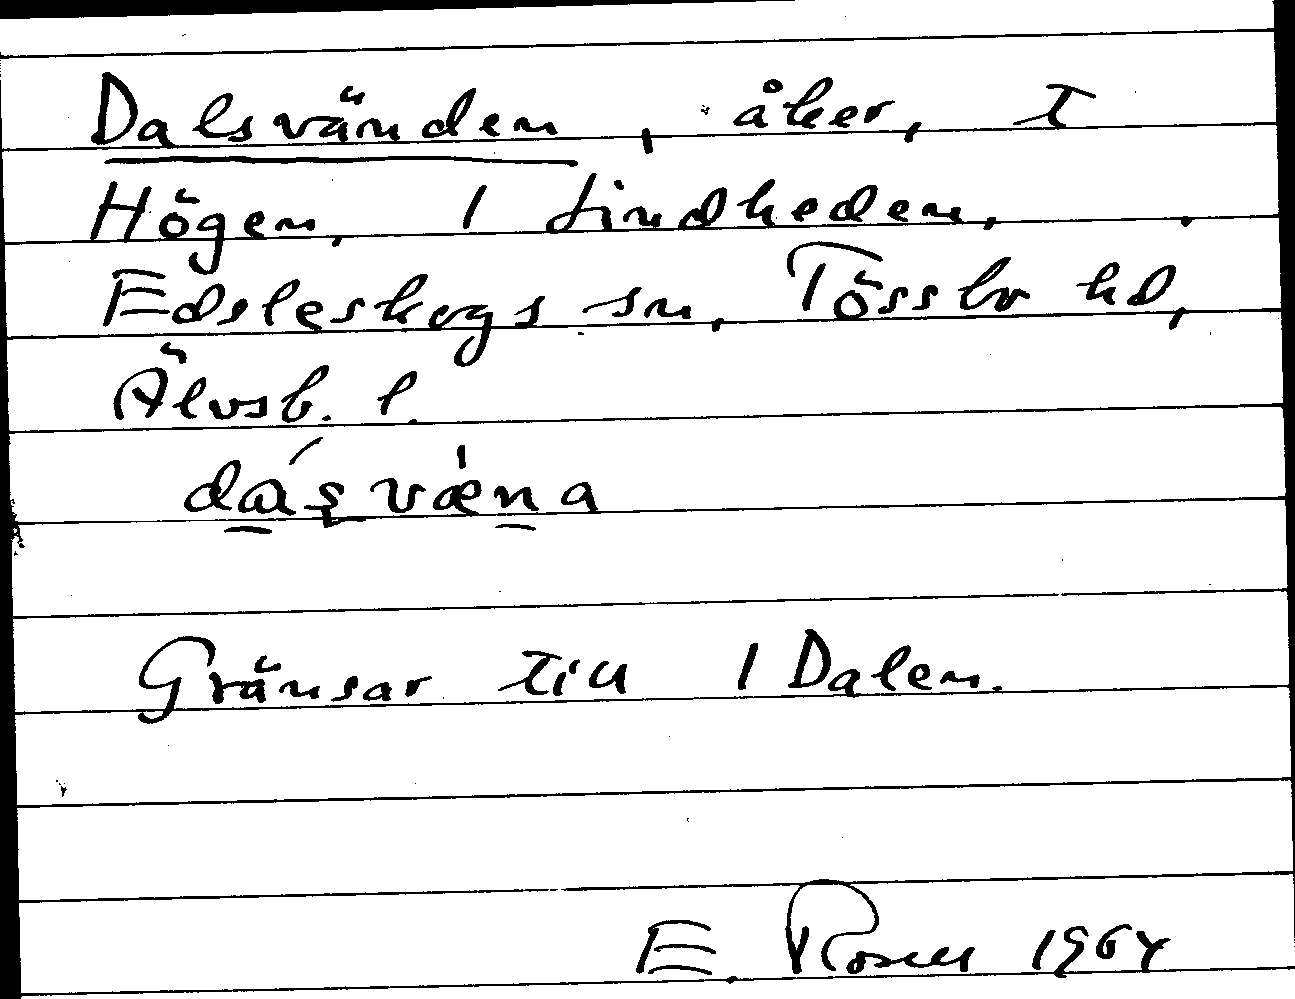 Dalsvänden, åker, t
Högen, 1 Lindheden,
Edsleskogs sn, Tössbo hd,
Älvsb. l.
dásvæ̀na
Gränsar till 1 Dalen.
E. Rosell 1964